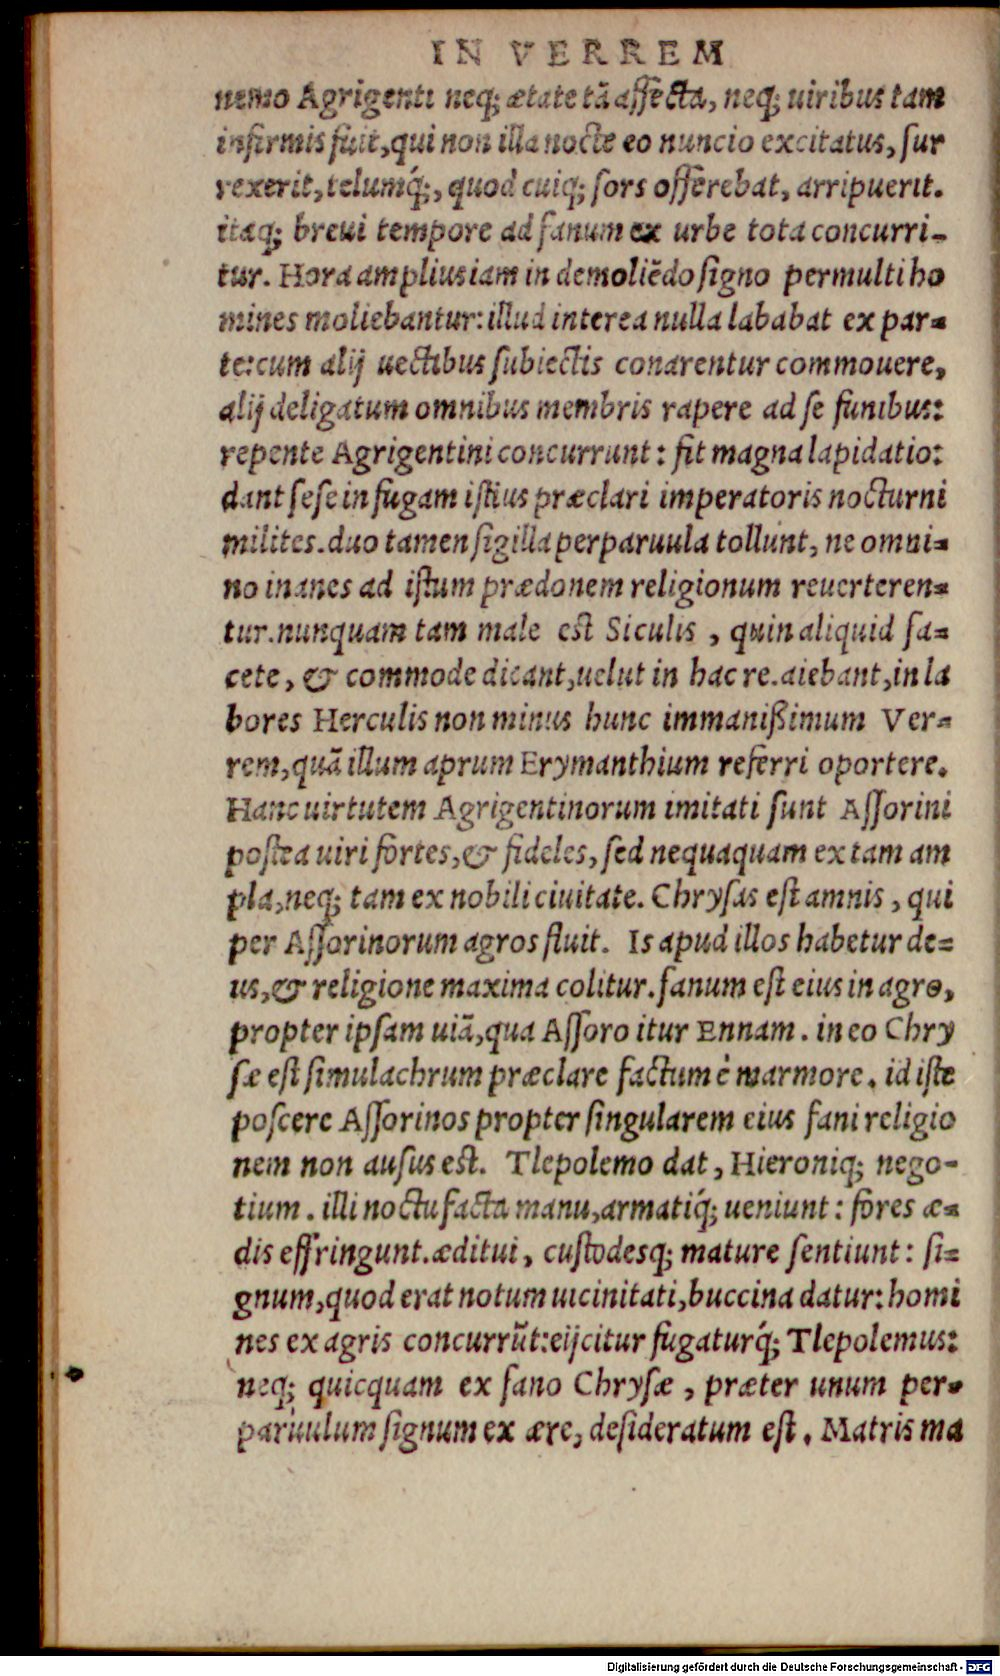 IN VERREM
nemo Agrigenti neq; ætate tā affecta, neq; uiribus tam
infirmis fuit, qui non illa nocte eo nuncio excitatus, ſur
rexerit, telumq́;, quod cuiq; ſors offerebat, arripuerit.
itaq; breui tempore ad fanum ex urbe tota concurri-
tur. Hora amplius iam in demoliēdo ſigno permulti ho
mines moliebantur: illud interea nulla lababat ex par-
te: cum alij uectibus ſubiectis conarentur commouere,
alij deligatum omnibus membris rapere ad ſe funibus:
repente Agrigentini concurrunt: fit magna lapidatio:
dant ſeſe in fugam iſtius præclari imperatoris nocturni
milites. duo tamen ſigilla perparuula tollunt, ne omni-
no inanes ad iſtum prædonem religionum reuerteren-
tur. nunquam tam male est Siculis, quin aliquid fa-
cete, & commode dicant, uelut in hac re. aiebant, in la
bores Herculis non minus hunc immanißimum Ver-
rem, quā illum aprum Erymanthium referri oportere.
Hanc uirtutem Agrigentinorum imitati ſunt Aſſorini
poſtea uiri fortes, & fideles, ſed nequaquam ex tam am
pla, neq; tam ex nobili ciuitate. Chryſas eſt amnis, qui
per Aſſorinorum agros fluit. Is apud illos habetur de-
us, & religione maxima colitur. fanum eſt eius in agro,
propter ipſam uiā, qua Aſſoro itur Ennam. in eo Chry
ſæ eſt ſimulachrum præclare factum è marmore. id iſte
poſcere Aſſorinos propter ſingularem eius fani religio
nem non auſus est. Tlepolemo dat, Hieroniq; nego-
tium. illi noctu facta manu, armatiq́; ueniunt: fores æ-
dis effringunt. æditui, cuſtodesq; mature ſentiunt: ſi-
gnum, quod erat notum uicinitati, buccina datur: homi
nes ex agris concurrūt: eijcitur fugaturq́; Tlepolemus:
neq; quicquam ex fano Chryſæ, præter unum per-
paruulum ſignum ex ære, deſideratum eſt. Matris ma
Digitalisierung gefördert durch die Deutsche Forschungsgemeinschaft - DFG